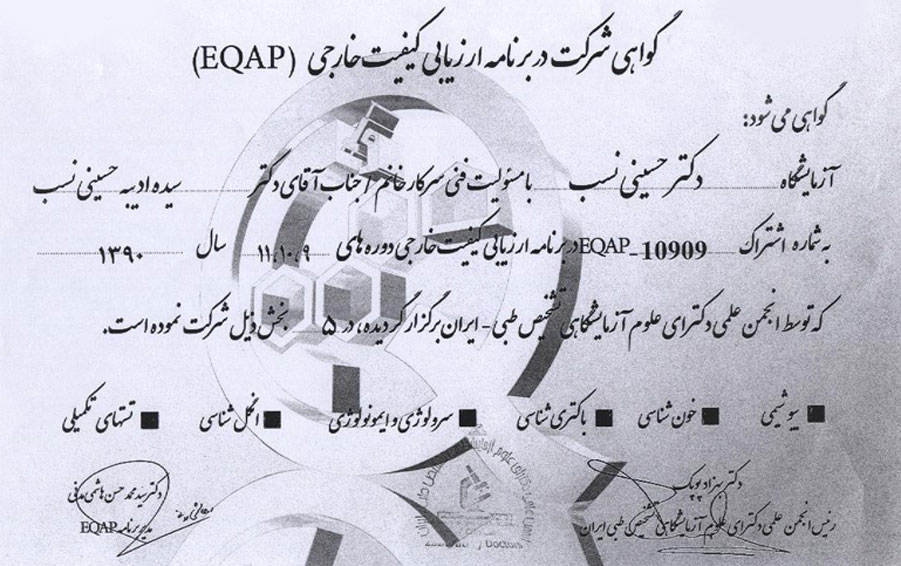 گواهی شرکت در برنامه ارزیابی کیفیت خارجی (EQAP)
گواهی می شود:
آزمایشگاه دکتر حسینی نسب با مسئولیت فنی سرکار خانم / جناب آقای دکتر سیده ادیبه حسینی نسب
به شماره اشتراک EQAP-10909 در برنامه ارزیابی کیفیت خارجی دوره های ۹، ۱۰، ۱۱ سال ۱۳۹۰
که توسط انجمن علمی دکترای علوم آزمایشگاهی تشخیص طبی - ایران برگزار گردیده، در ۵ بخش ذیل شرکت نموده است.
■ بیوشیمی ■ خون شناسی ■ باکتری شناسی ■ سرولوژی و ایمونولوژی ■ انگل شناسی ■ تستهای تکمیلی
دکتر بهزاد پوپک
رئیس انجمن علمی دکترای علوم آزمایشگاهی تشخیص طبی ایران
دکتر سید محمد حسن هاشمی مدنی
مدیر برنامه EQAP
Doctors